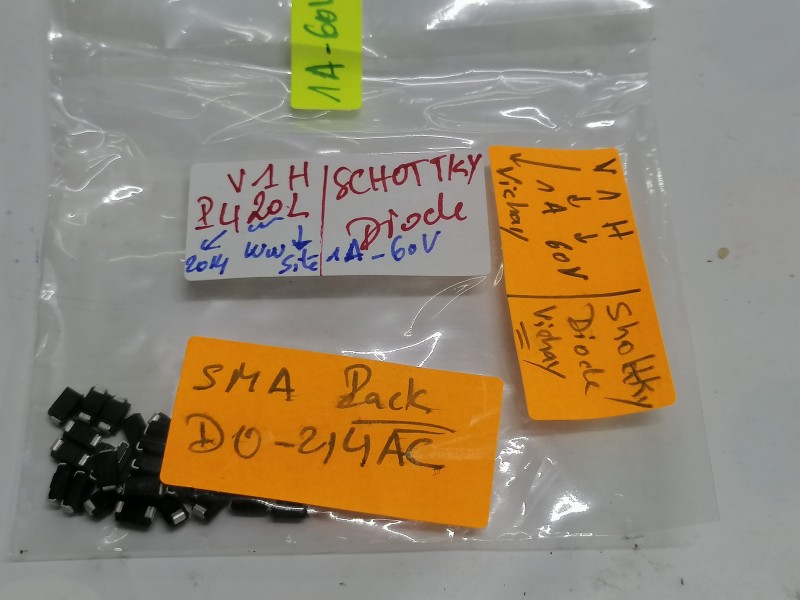 1A-60V
V1H
P420L
2014 WW Site
SCHOTTKY
Diode
1A-60V
V 1 H
1A 60V
Vichay
Shottky
Diode
Vichay
SMA Pack
DO-214AC